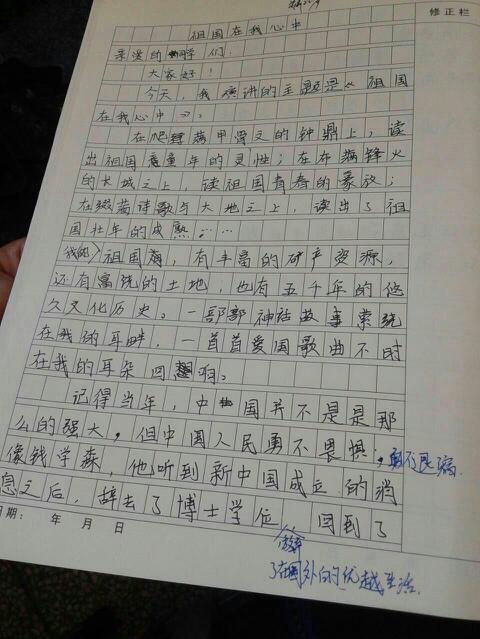 修正栏
祖国在我心中
亲爱的同学们：
大家好！
今天，我演讲的主题是《祖国
在我心中》。
在爬满甲骨文的钟鼎上，读
出祖国童年的灵性；在布满锋火
的长城之上，读祖国青春的豪放；
在缀满诗歌与大地之上，读出了祖
国壮年的成熟……
我的祖国啊，有丰富的矿产资源，
还有富饶的土地，也有五千年的悠
久文化历史。一部部神话故事萦绕
在我的耳畔，一首首爱国歌曲不时
在我的耳朵回响。
记得当年，中国并不是是那
么的强大，但中国人民勇不畏惧，
像钱学森，他听到新中国成立的消
息之后，辞去了博士学位 回到了
日期： 年 月 日
了在国外的优越生活.